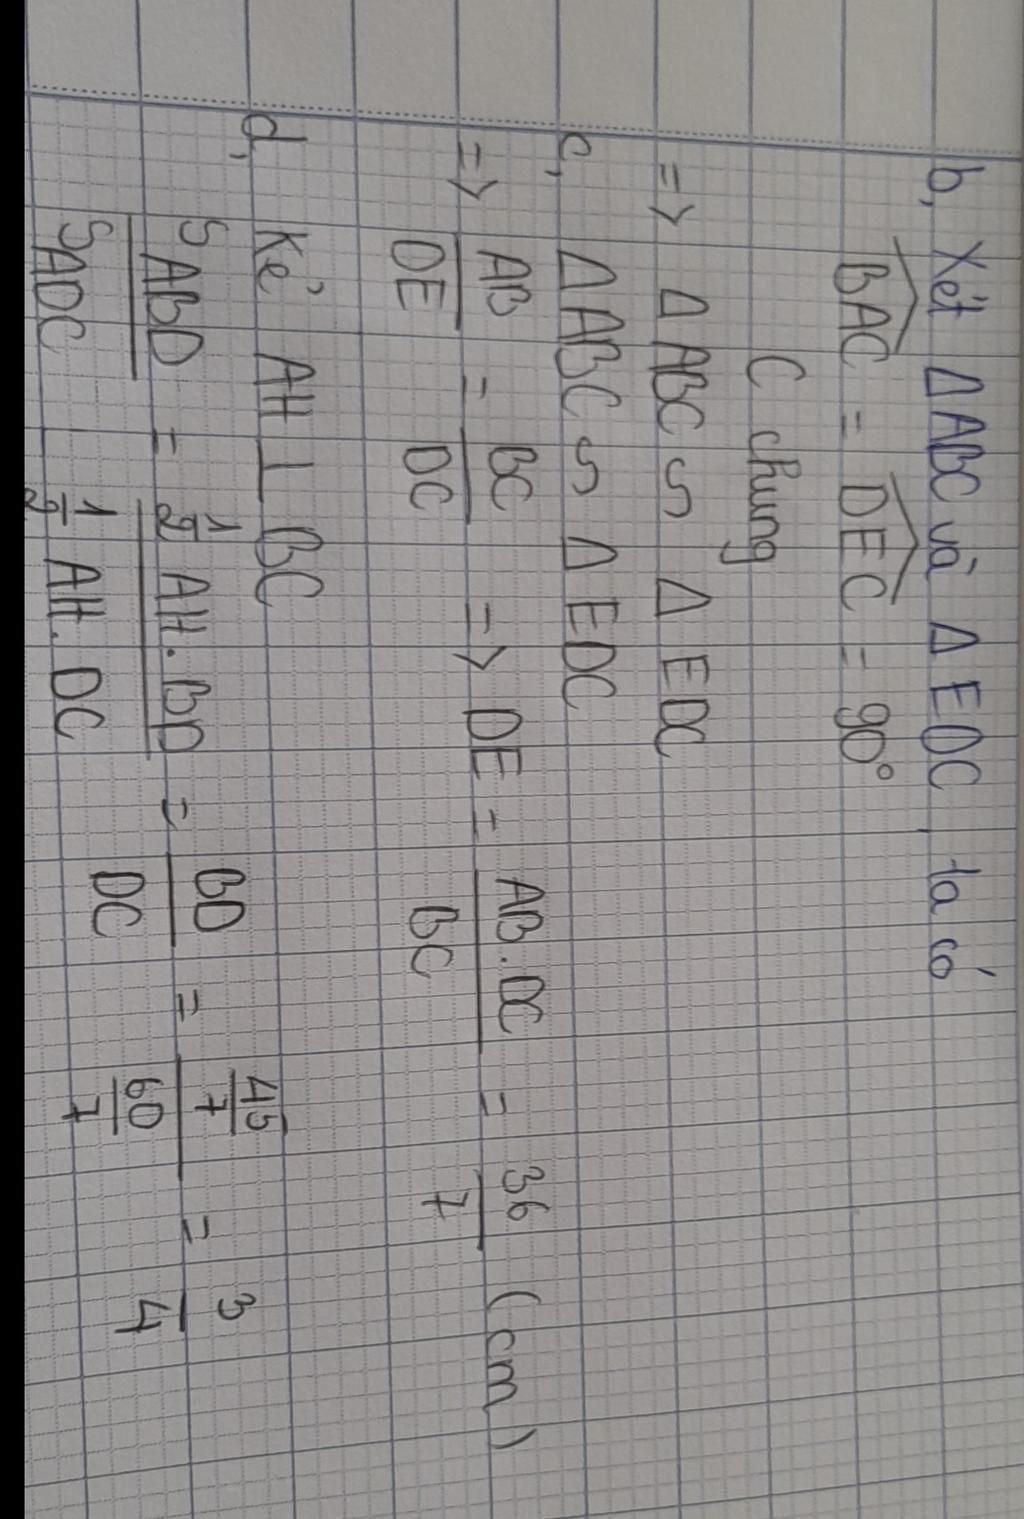 b, Xét Δ ABC và Δ EDC, ta có
BAC = DEC = 90°
C chung
=> Δ ABC ∽ Δ EDC
c, Δ ABC ∽ Δ EDC
=> AB/DE = BC/DC => DE = AB.DC/BC = 36/7 (cm)
d, Kẻ AH ⊥ BC
SABD/SADC = 1/2 AH.BD / 1/2 AH.DC = BD/DC = 45/7 / 60/7 = 3/4